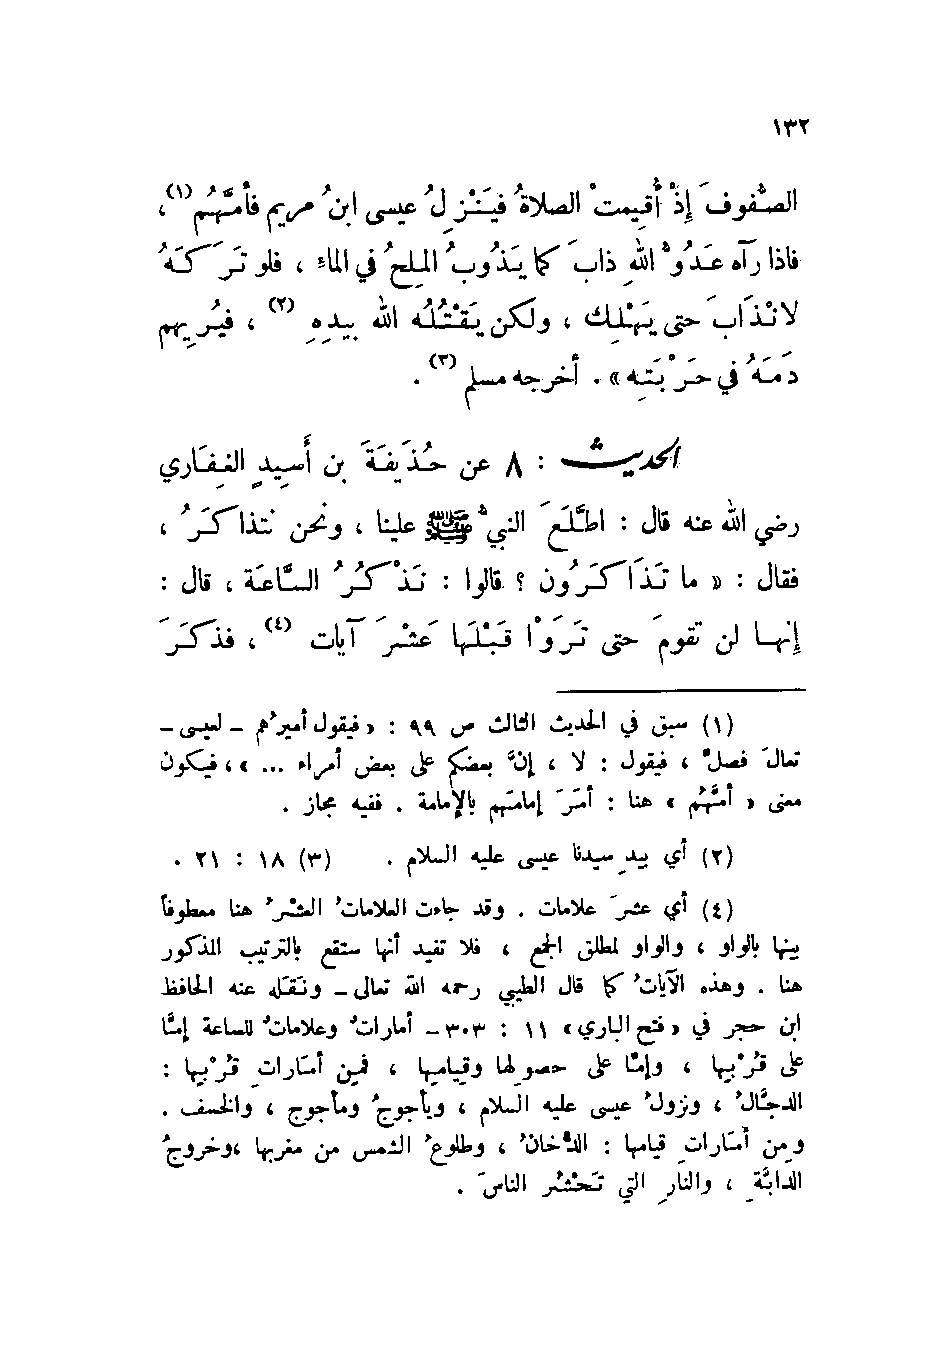 ١٣٢
الصُّفوفَ إذْ أُقيمتْ الصلاةُ فيَنْزِلُ عيسى ابنُ مريم فأمَّهُم(١)،
فاذا رآه عَدُوُّ اللهِ ذابَ كما يَذُوبُ المِلحُ في الماءِ ، فلو تَرَكَهُ
لانْذَابَ حتى يَهْلِك ، ولكن يَقْتُلُه الله بيدِهِ (٢) ، فيُريهِم
دَمَهُ في حَرْبَتِه » . أخرجه مسلم (٣) .
الحديث : ٨ عن حُذَيفَةَ بن أَسِيدٍ الغِفَاري
رضي الله عنه قال : اطَّلَعَ النبيُّ ﷺ علينا ، ونحن نتذاكَرُ ،
فقال : « ما تَذَاكَرُون ؟ قالوا : نَذْكُرُ السَّاعَة ، قال :
إنها لن تقومَ حتى تَرَوْا قَبْلَها عَشْرَ آيات (٤) ، فذكَرَ
(١) سبق في الحديث الثالث ص ٩٩ : «فيقول أميرُهم - لعيسى -
تعالَ فصلِّ ، فيقول : لا ، إنَّ بعضكم على بعض أمراء ... » ، فيكون
معنى « أمَّهُم » هنا : أمَرَ إمامَهم بالإمامة . ففيه مجاز .
(٢) أي بيدِ سيدنا عيسى عليه السلام . (٣) ١٨ : ٢١ .
(٤) أي عشرَ علامات . وقد جاءت العلاماتُ العَشْرُ هنا معطوفاً
بينها بالواو ، والواو لمطلق الجمع ، فلا تفيد أنها ستقع بالترتيب المذكور
هنا . وهذه الآياتُ كما قال الطيبي رحمه الله تعالى - ونَقَله عنه الحافظ
ابن حجر في «فتح الباري» ١١ : ٣٠٣ - أماراتٌ وعلاماتٌ للساعة إمَّا
على قُرْبِها ، وإمَّا على حصولها وقيامِها ، فمِن أمَاراتِ قُرْبِها :
الدجَّالُ ، ونزولُ عيسى عليه السلام ، ويأجوجُ ومأجوج ، والخسف .
ومِن أمَاراتِ قيامها : الدُّخانُ ، وطلوعُ الشمس من مغربها ،وخروجُ
الدابَّةِ ، والنارِ التي تَحْشُرُ الناسَ .